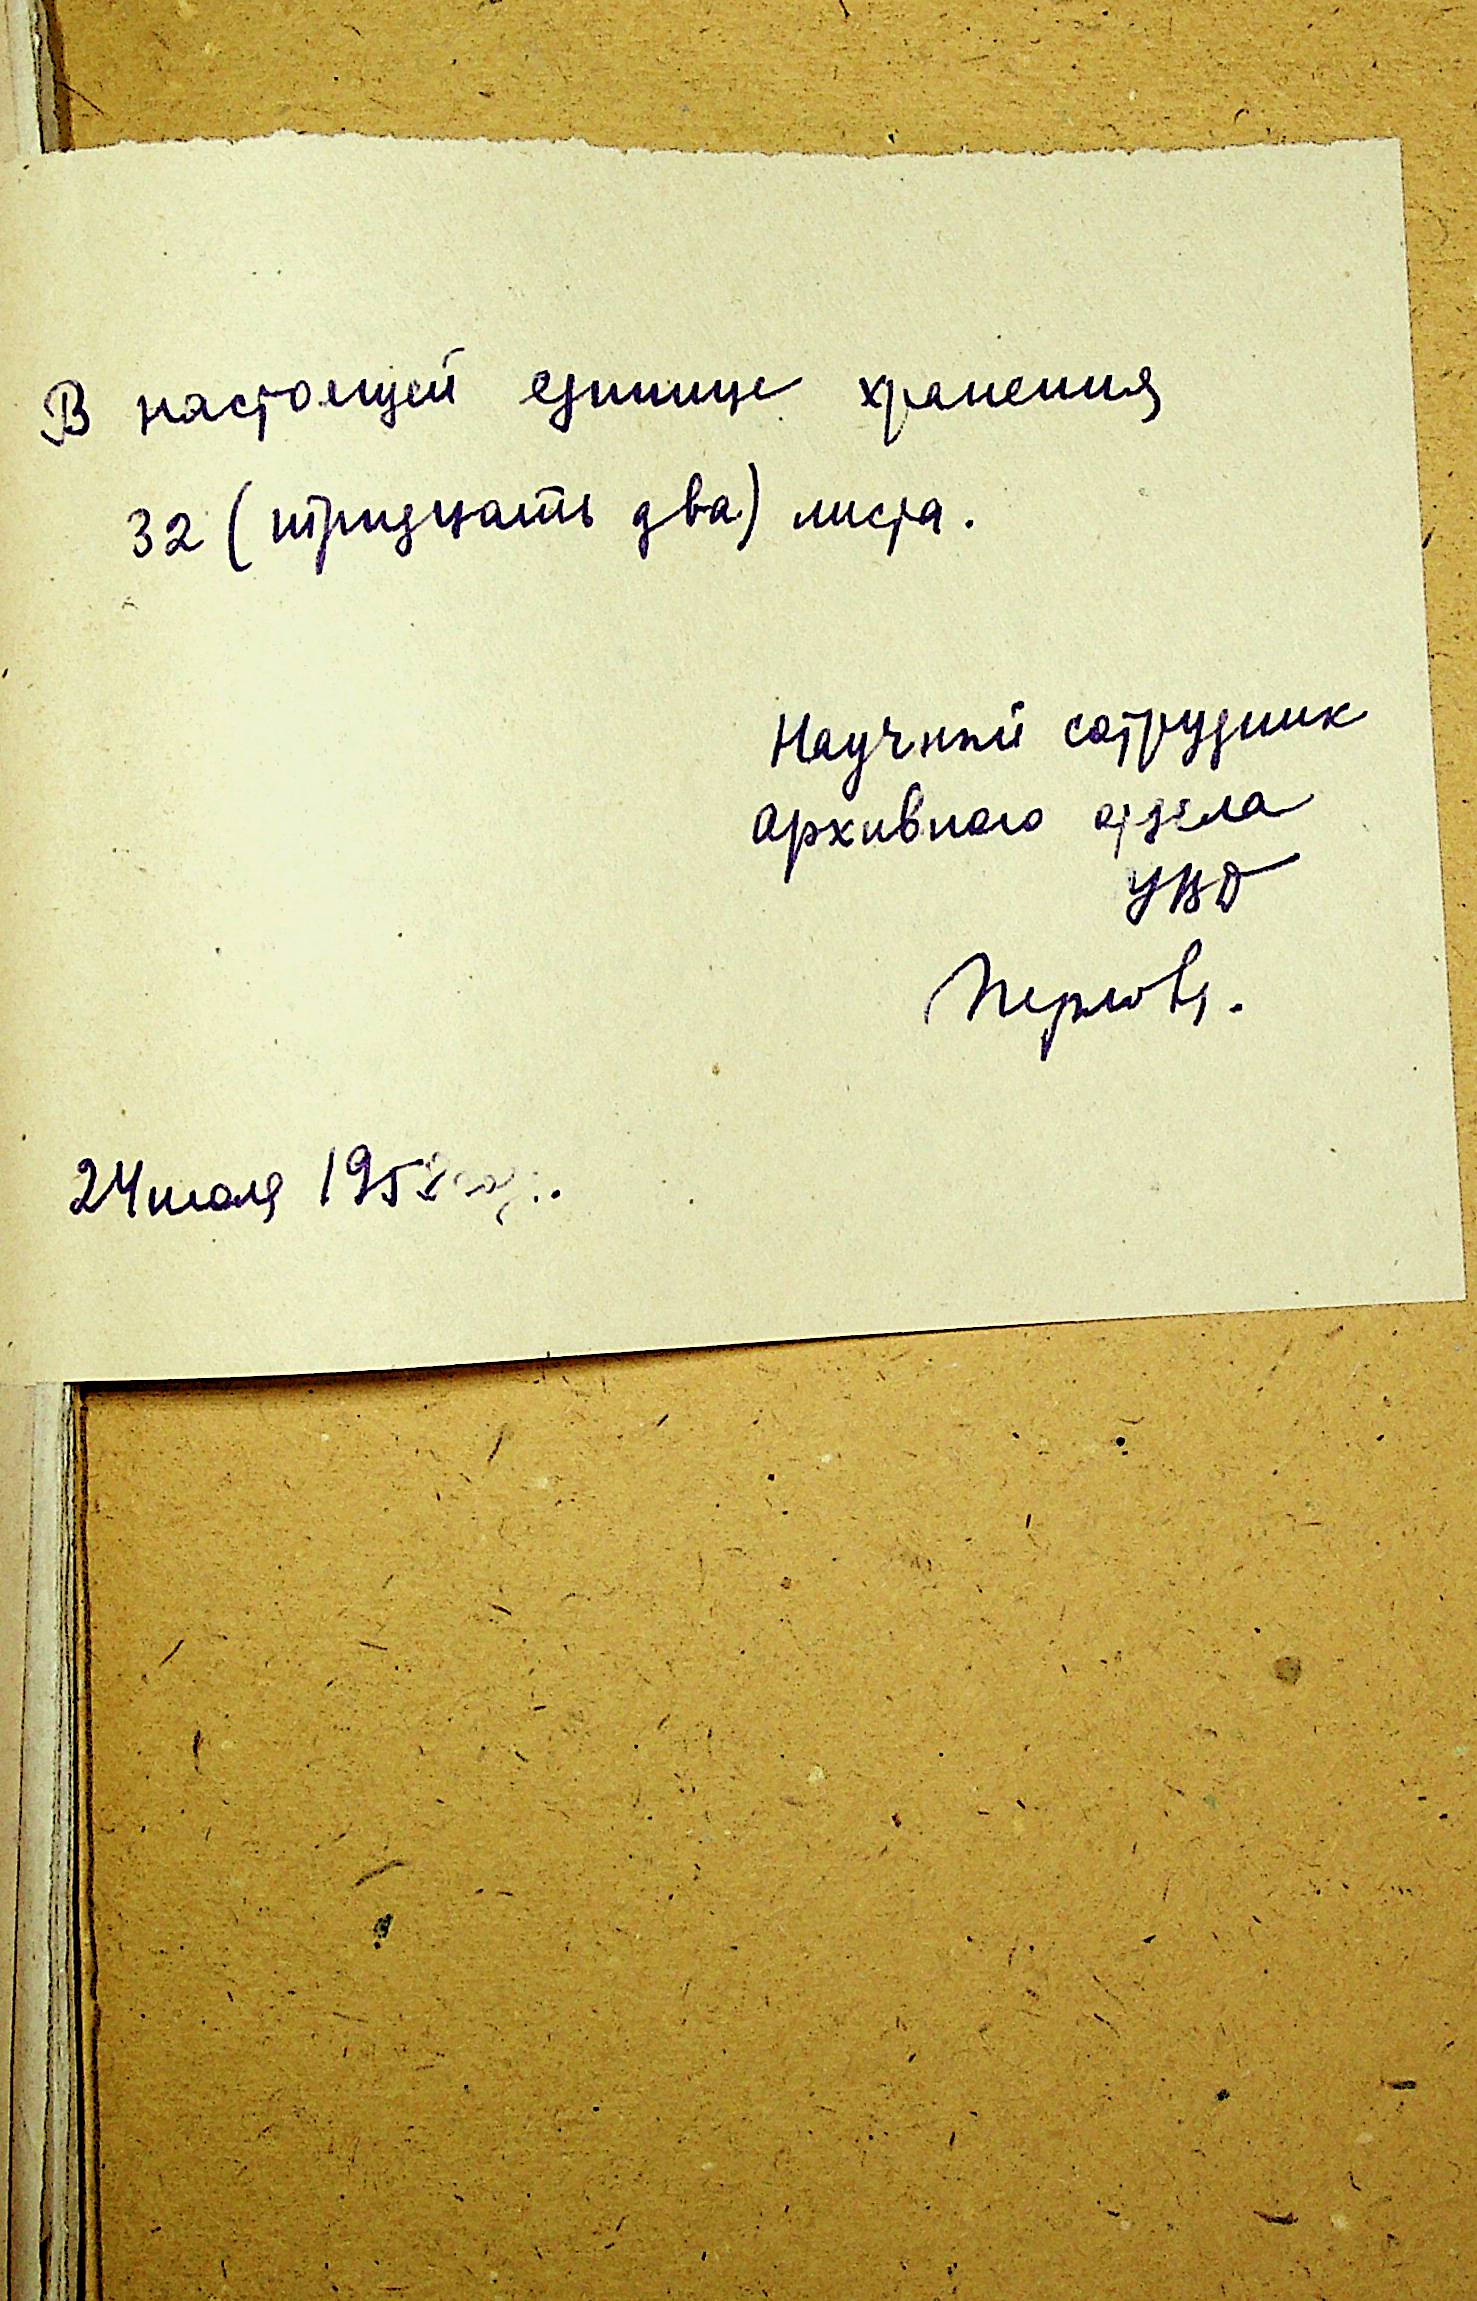 В настоящей единице хранения
32 (тридцать два) листа.
Научный сотрудник
архивного отдела
УВД
24 июля